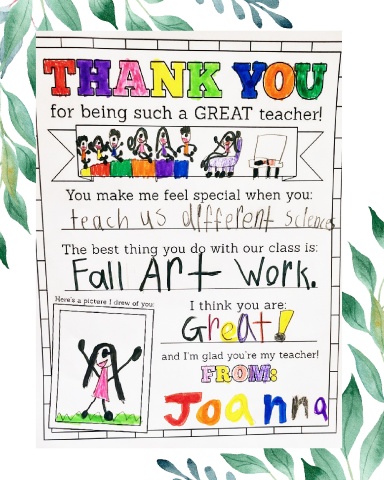 THANK YOU
for being such a GREAT teacher!
You make me feel special when you:
teach us different sciences
The best thing you do with our class is:
Fall Art Work.
Here's a picture I drew of you:
I think you are:
Great!
and I'm glad you're my teacher!
FROM:
Joanna